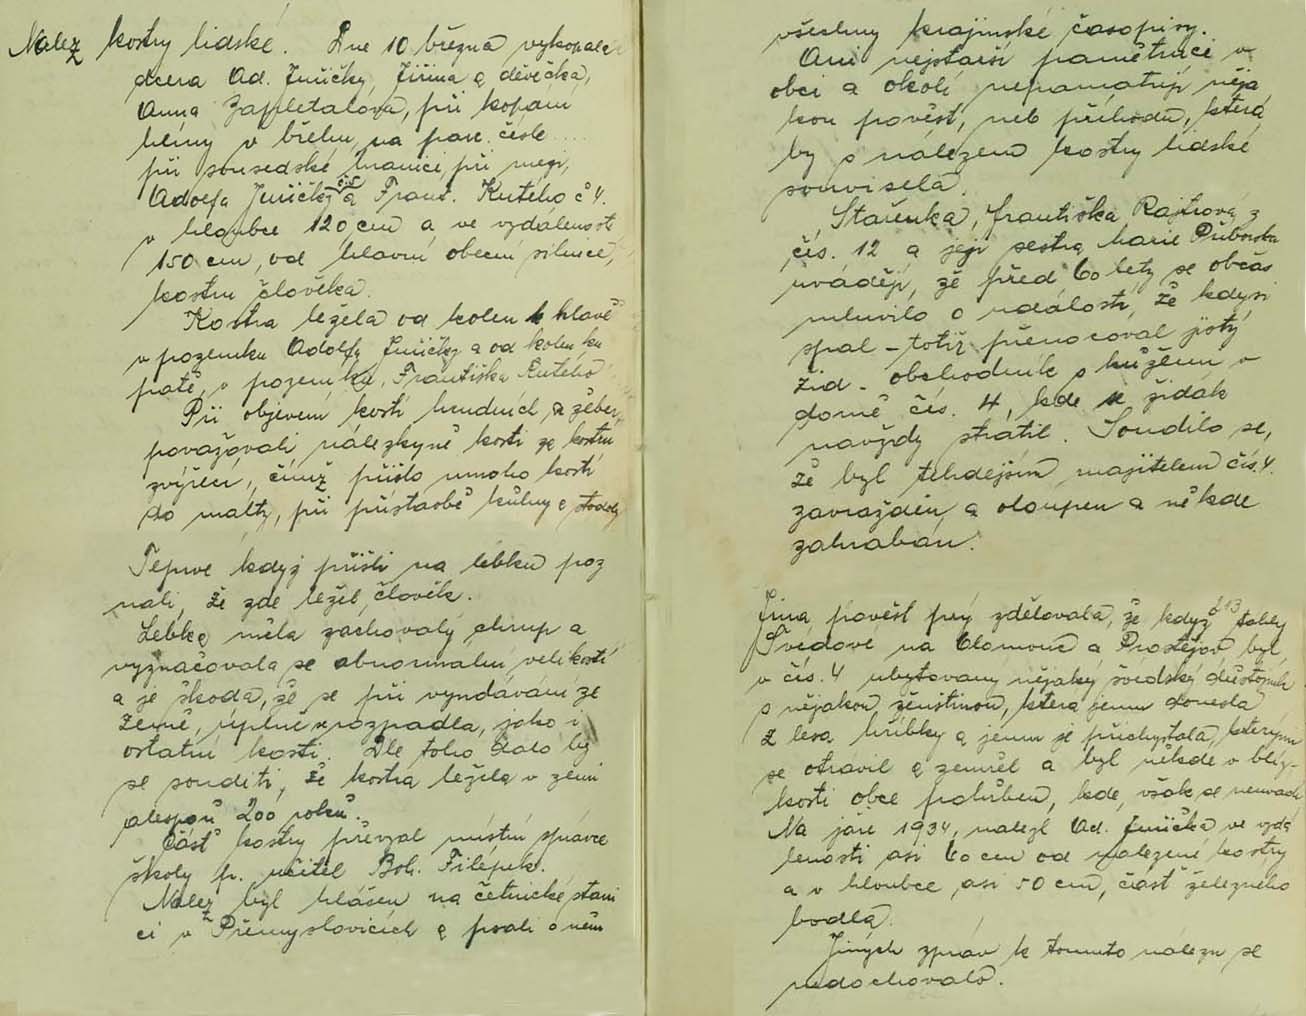 Nalez kostry lidské. Dne 10 března vykopala
dcera Ad. Juřičky, Jiřina a děvečka,
Anna Zapletalova, při kopání
hlíny v břehu, na parc. čísle ....
při sousedské hranici, při mezi,
Adolfa Juřičky čís a Frant. Kutého č 4.
v hloubce 120 cm a ve vzdálenosti
150 cm, od hlavní obecní silnice,
kostru člověka.
Kostra ležela od kolen k hlavě
v pozemku Adolfa Juřičky a od kolen ku
patě, v pozemku, Františka Kutého
Při objevení kostí hrudních, a žeber,
považovali nálezkyně kosti za kostru
zvířecí, čímž přišlo mnoho kostí
do malty, při přístavbě kůlny a stodoly
Teprve když přišli na lebku poz
nali, že zde ležel, člověk.
Lebka měla zachovalý chrup a
vyznačovala se abnormalní velikostí
a je škoda, že se při vyndávání ze
země, úplně rozpadla, jako i
ostatní kosti. Dle toho dalo by
se souditi, že kostra ležela v zemi
alespoň 200 roků.
Část kostry převzal místní správce
školy p. učitel Boh. Filípek.
Nalez byl hlášen na četnické stani
ci v Přemyslovicích a psali o něm
všechny krajinské časopisy.
Ani nejstarší pamětníci v
obci a okolí nepamatují něja
kou pověst, neb příhodu, která
by s nálezem kostry lidské
souvisela.
Stařenka, františka Rajtrova z
čís. 12 a její sestra Marie Příborska
uvádějí, že před 60 lety se občas
mluvilo o události, že kdysi
spal - totiž přenocoval jistý
žid - obchodník s kůžemi v
domě čís. 4, kde se židák
navždy stratil. Soudilo se,
že byl tehdejším majitelem čís. 4.
zavražděn a oloupen a někde
zahrabán.
Jina pověst prý zdělovala, že když táhly
Švédové na Olomouc a Prostějov byl
v čís. 4 ubytovany nějaký švédský důstojník
s nějakou ženštinou, která jemu donesla
z lesa hříbky a jemu je přichystala, kterými
se otravil a zemřel a byl někde v blíz-
kosti obce pohřben, kde, však se neuvádí
Na jaře 1934, nalezl Ad. Juřička ve vzdá
lenosti asi 60 cm od nalezené kostry
a v hloubce asi 50 cm, část železného
bodla.
Jiných zpráv k tomuto nálezu se
nedochovalo.